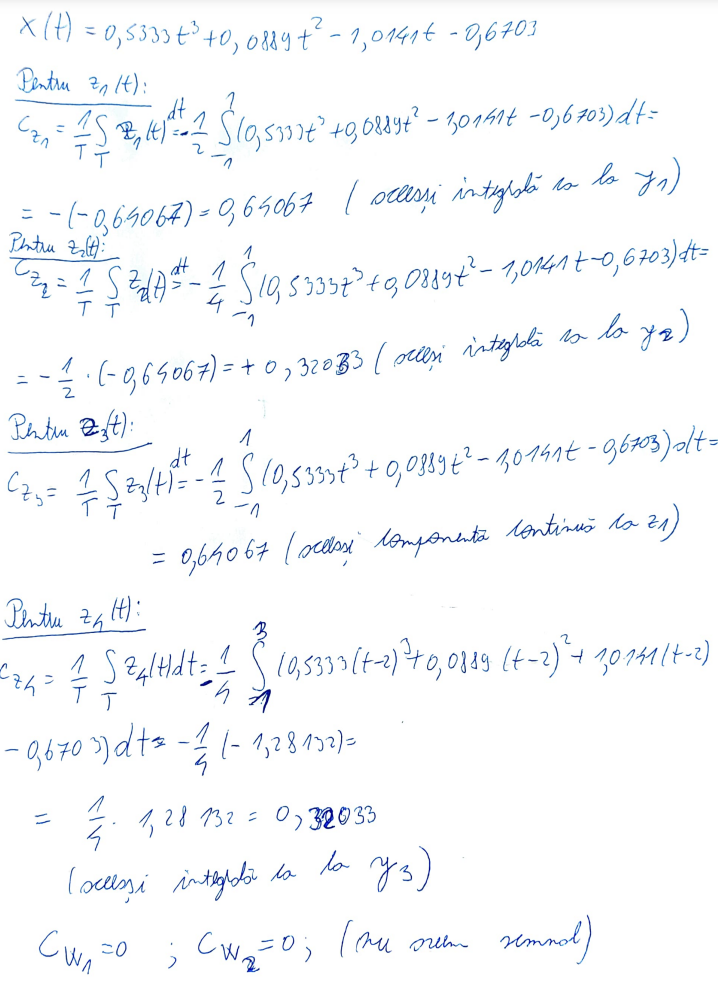 x(t) = 0,5333t³ + 0,0889t² - 1,0141t - 0,6703
Pentru z₁(t):
C_z₁ = 1/T ∫_T z₁(t) dt = -1/2 ∫_{-1}^{1} (0,5333t³ + 0,0889t² - 1,0141t - 0,6703) dt =
= -(-0,64067) = 0,64067 (aceeași integrală ca la y₁)
Pentru z₂(t):
C_z₂ = 1/T ∫_T z₂(t) dt = -1/4 ∫_{-1}^{1} (0,5333t³ + 0,0889t² - 1,0141t - 0,6703) dt =
= -1/2 · (-0,64067) = + 0,32033 (aceeși integrală ca la y₂)
Pentru z₃(t):
C_z₃ = 1/T ∫_T z₃(t) dt = -1/2 ∫_{-1}^{1} (0,5333t³ + 0,0889t² - 1,0141t - 0,6703) dt =
= 0,64067 (aceeași componentă continuă ca z₁)
Pentru z₄(t):
C_z₄ = 1/T ∫_T z₄(t) dt = -1/4 ∫_{1}^{3} (0,5333(t-2)³ + 0,0889 (t-2)² + 1,0141(t-2)
- 0,6703) dt = -1/4 (-1,28132) =
= 1/4 · 1,28132 = 0,32033
(aceeași integrală ca la y₃)
C_w₁ = 0 ; C_w₂ = 0; (nu avem semnal)